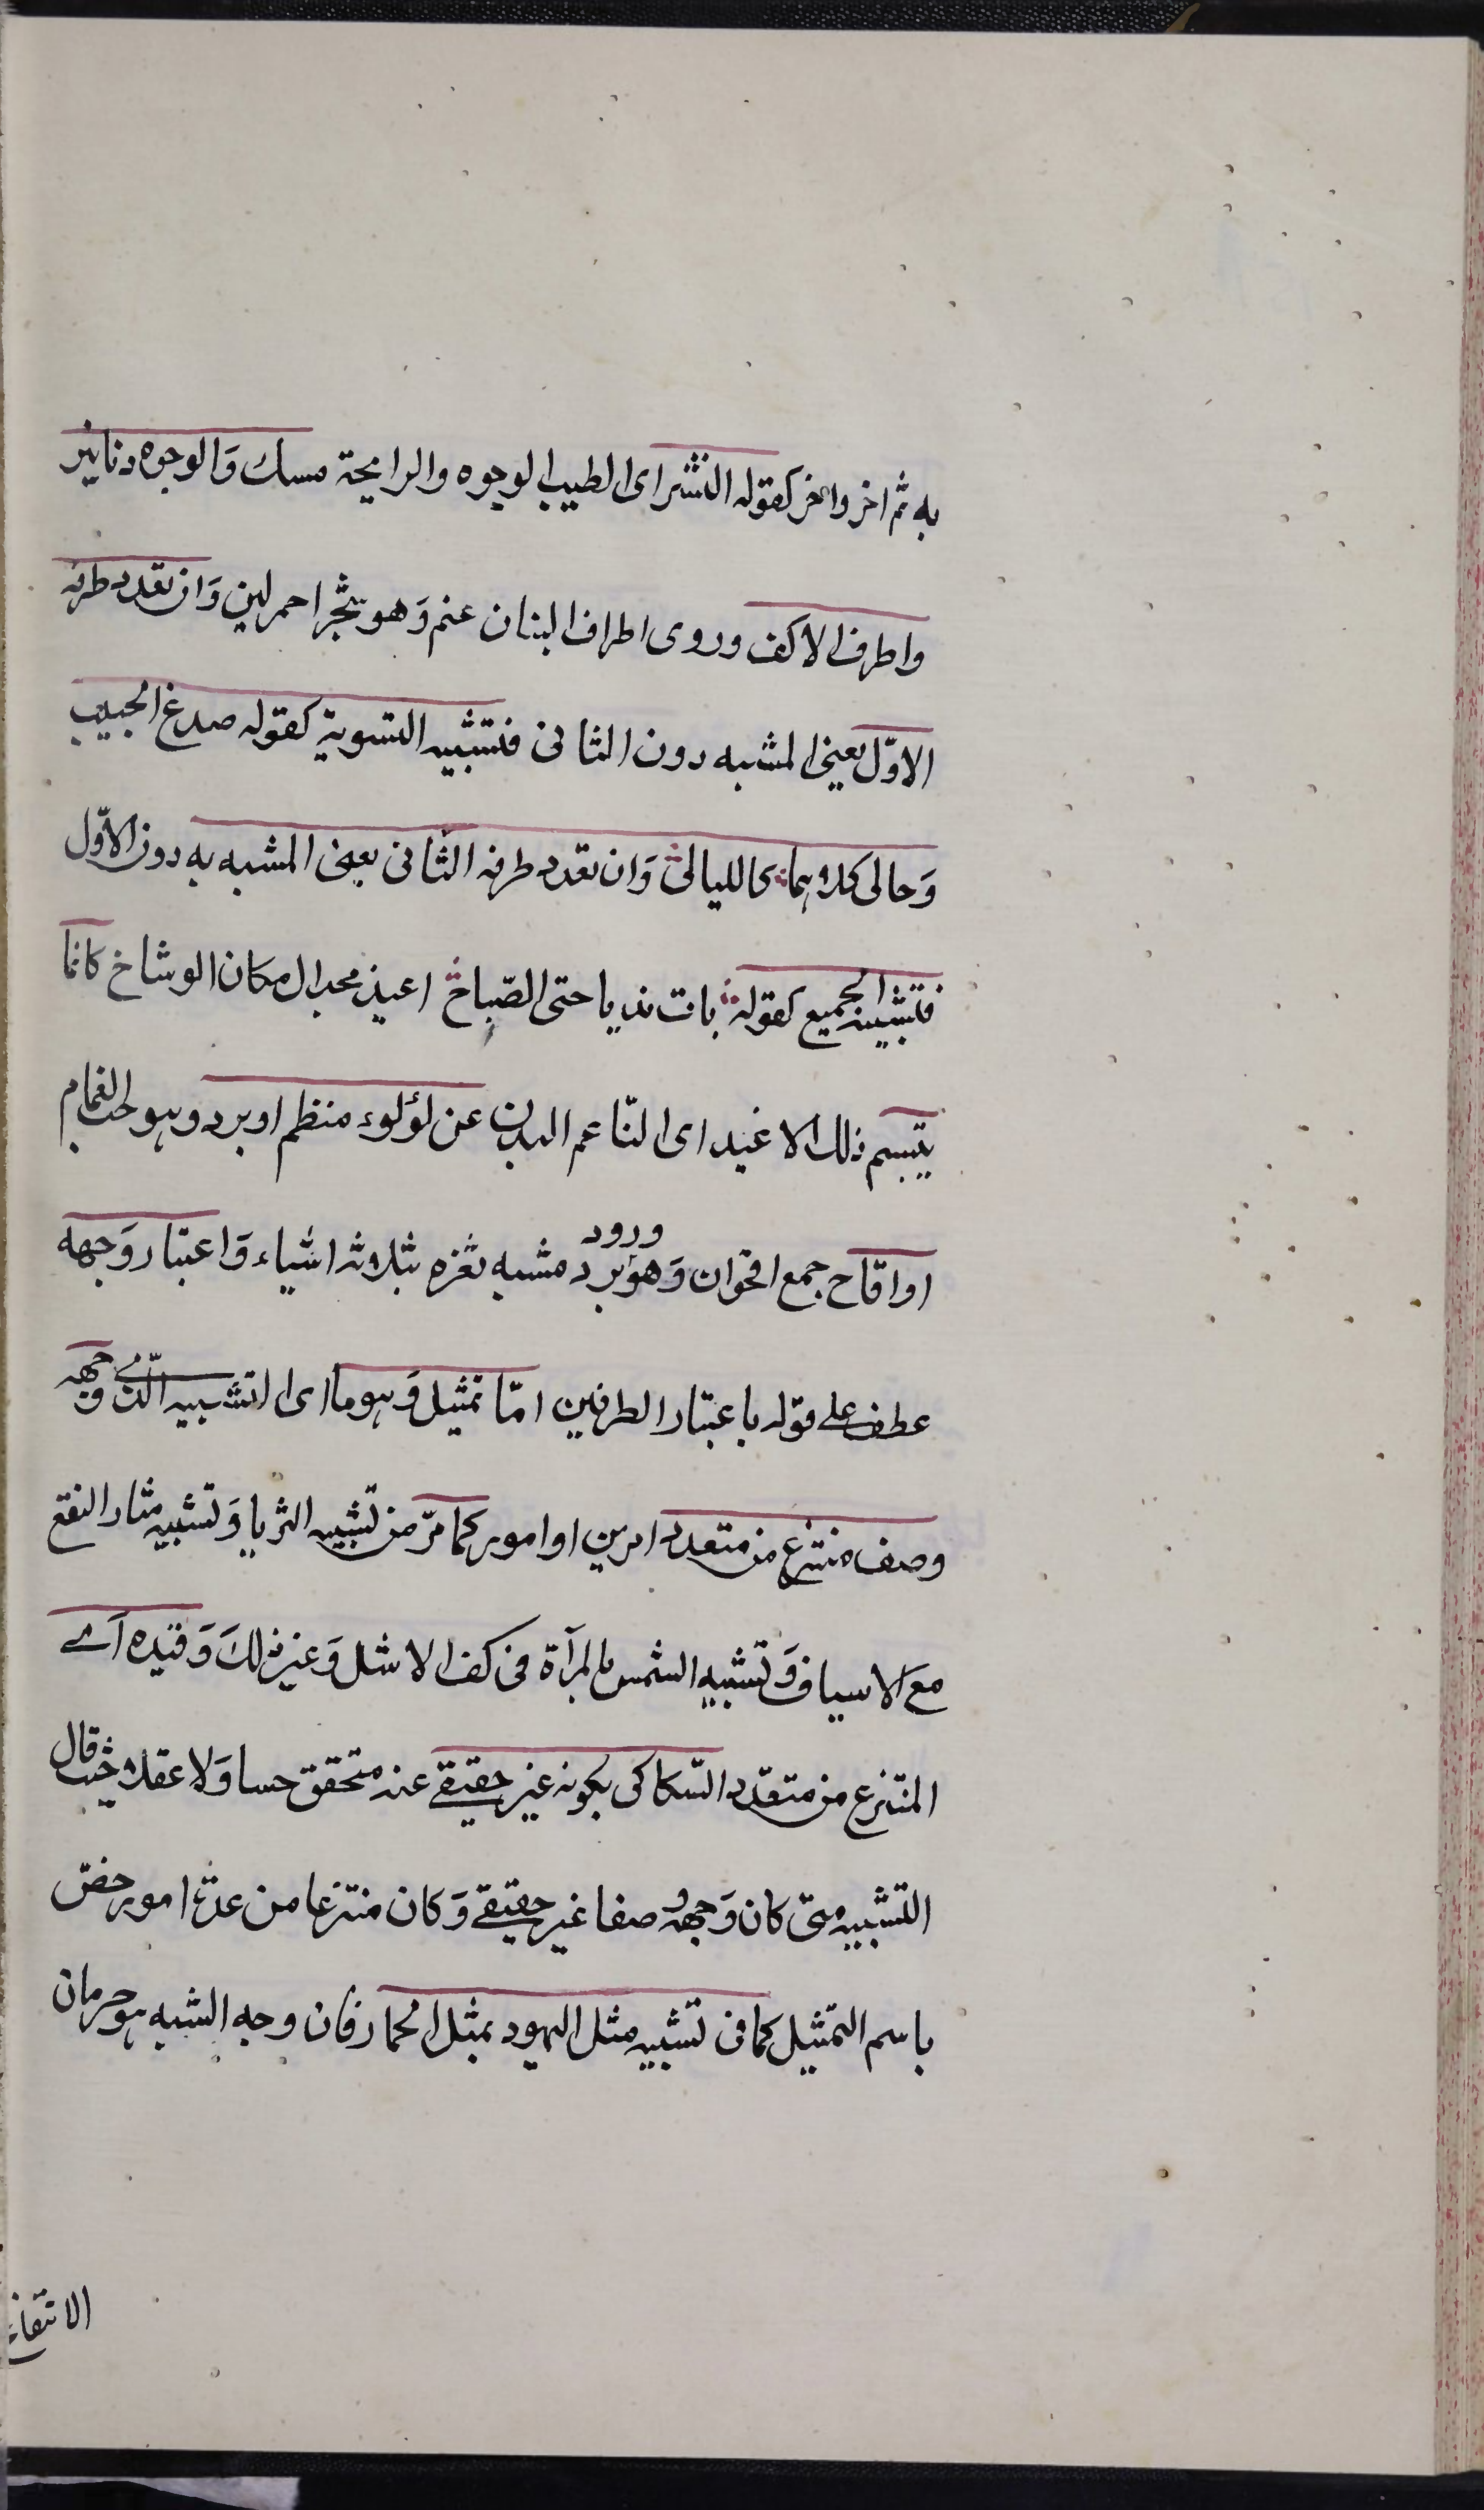 به ثم اخر واخر كقوله النشر اى الطيب الوجوه والرايحة مسك وَالوجوه دنانير
واطرف الاكف وروى اطراف البنان عنم وَهو شجر احمر لين وَان تعدد طرفه
الاوّل يعنى المشبه دون الثانى فتشبيه التسوية كقوله صدغ الحبيب
وَحالى كلاهما كالليالى وَان تعدد طرفه الثانى يعنى المشبه به دون الاوّل
فتشبيه الجميع كقوله بات نديا حتى الصّباح اغيد مجدال مكان الوشاح كانما
يتبسم ذلك الاغيد اى النّاعم البدن عن لؤلوء منظم او برد وهو حب الغمام
او اقاح جمع اقحوان وَهو ورود برد مشبه ثغره بثلاثه اشياء وَاعتبار وَجهه
عطف على قوله باعتبار الطرفين امّا تمثيل وَهو ما اى التشبيه الّذى وجهه
وصف منتزع من متعدد امرين او امور كما مرّ من تشبيه الثريا وَتشبيه مثار النقع
مع الاسياف وَتشبيه الشمس بالمرآة فى كف الاشل وَغير ذلك وَقيده اى
المنتزع من متعدّد السّكاكى بكونه غير حقيقى عند متحقق حسا وَلا عقلا حيث قال
التشبيه متى كان وَجهه وصفا غير حقيقى وَكان منتزعا من عدة امور خصّ
باسم التمثيل كما فى تشبيه مثل اليهود بمثل الحمار فان وجه الشبه هو حرمان
الانتفاع